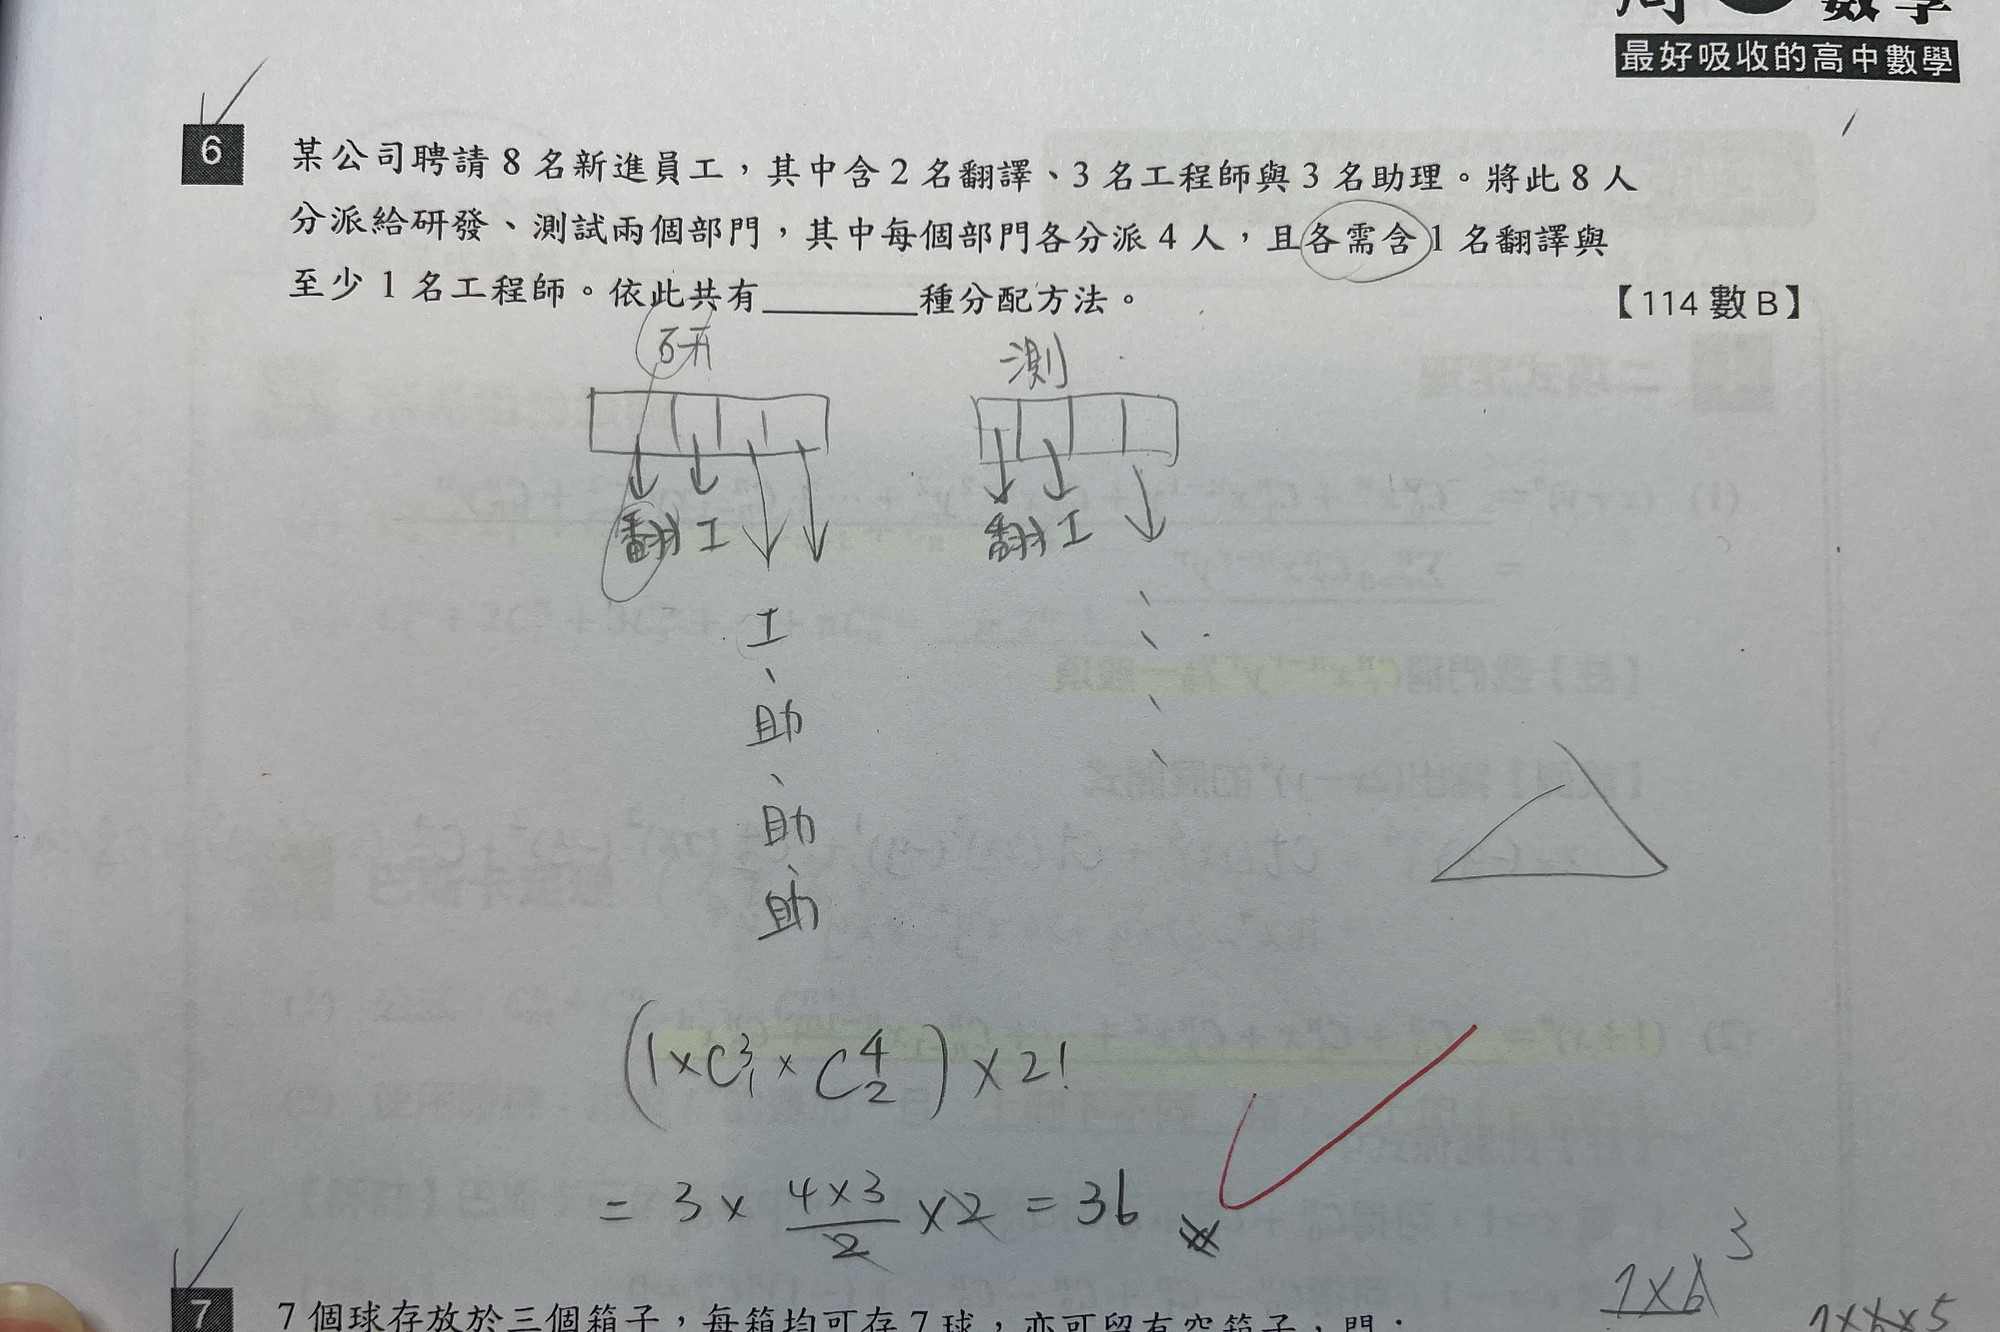 數學
最好吸收的高中數學
6
某公司聘請 8 名新進員工,其中含 2 名翻譯、3 名工程師與 3 名助理。將此 8 人
分派給研發、測試兩個部門,其中每個部門各分派 4 人,且各需含 1 名翻譯與
至少 1 名工程師。依此共有________種分配方法。
【114 數 B】
研 測
翻 工 翻 工
工、
助、
助、
助
(1×C³₁×C⁴₂)×2!
= 3 × (4×3)/2 ×2 = 36
3
7
7 個球存放於三個箱子,每箱均可存 7 球,亦可留有空箱子,問: